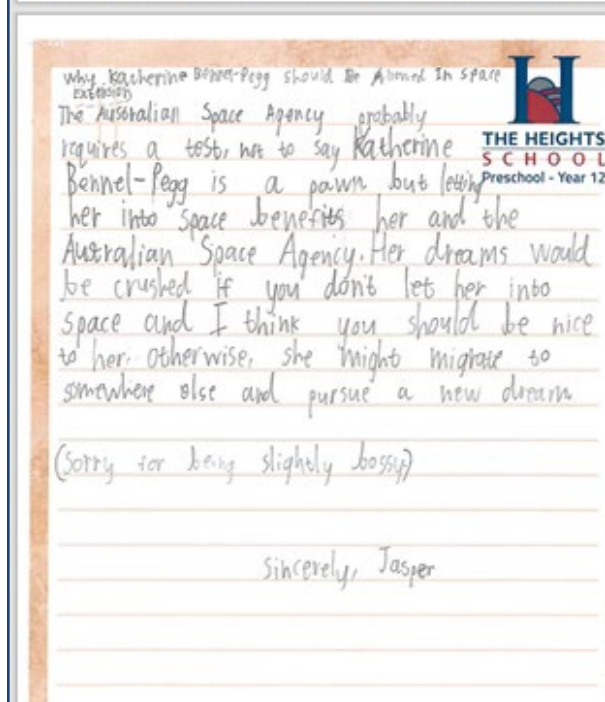 Why Katherine Bennel-Pegg should Be Allowed In space
Extension
The Australian Space Agency probably
requires a test, not to say Katherine
Bennel-Pegg is a pawn but letting
her into space benefits her and the
Australian Space Agency. Her dreams would
be crushed if you don't let her into
space and I think you should be nice
to her. Otherwise, she might migrate to
somewhere else and pursue a new dream
(Sorry for being slightly bossy)
Sincerely, Jasper
THE HEIGHTS
SCHOOL
Preschool - Year 12